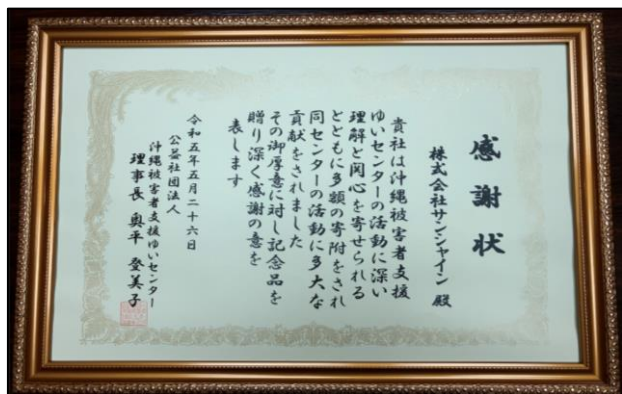 感謝状
株式会社サンシャイン 殿
貴社は沖縄被害者支援
ゆいセンターの活動に深い
理解と関心を寄せられる
とともに多額の寄附をされ
同センターの活動に多大な
貢献をされました
その御厚意に対し記念品を
贈り深く感謝の意を
表します
令和五年五月二十六日
公益社団法人
沖縄被害者支援ゆいセンター
理事長 奥平 登美子